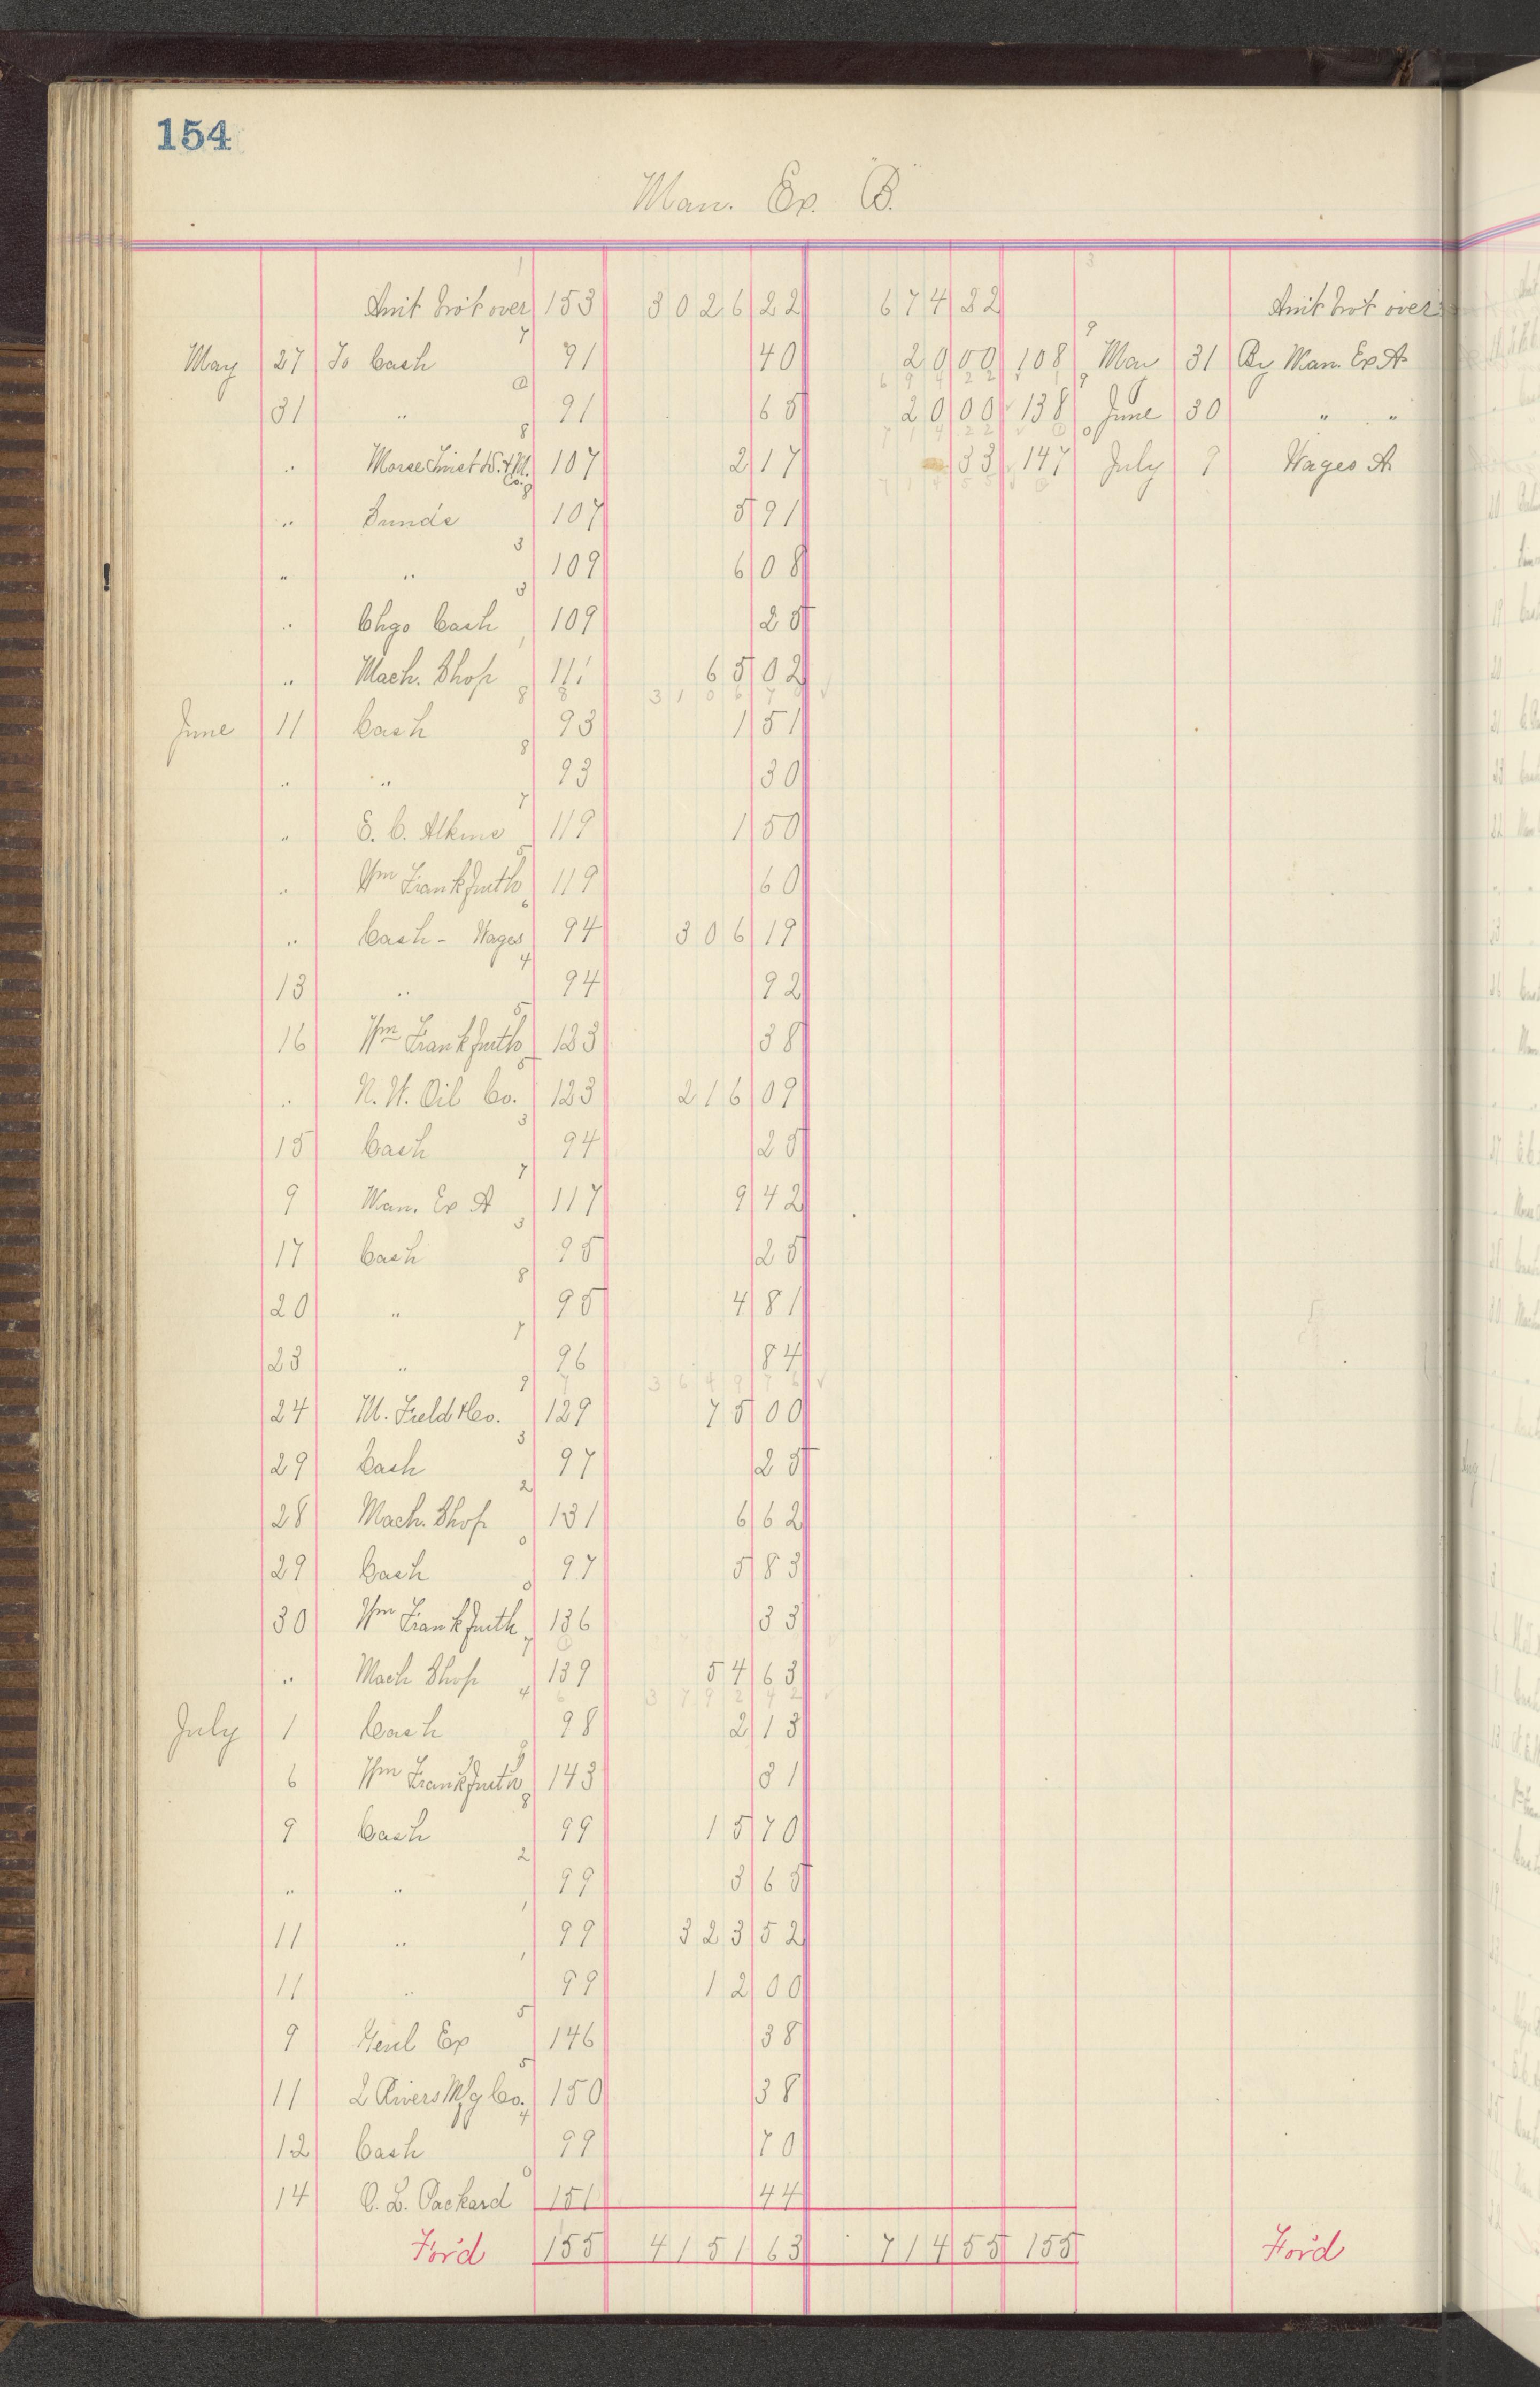 154
Man. Ex. "B."
Amt brot over 153 3026 22 674 22 Amt brot over
May 27 To Cash 91 40 20 00 108 May 31 By Man. Ex A
31 " 91 65 20 00 138 June 30 " "
" Morse Twist D. & M. Co. 107 2 17 33 147 July 9 Wages A
" Sunds 107 5 91
" " 109 6 08
" Chgo Cash 109 25
" Mach. Shop 111 65 02
3106 78 ✓
June 11 Cash 93 1 51
" " 93 30
" E. C. Atkins 119 1 50
" Wm Frankfurth 119 60
" Cash - Wages 94 306 19
13 " 94 92
16 Wm Frankfurth 123 38
" N. W. Oil Co. 123 216 09
15 Cash 94 25
9 Man. Ex A 117 9 42
17 Cash 95 25
20 " 95 4 81
23 " 96 84
3649 76 ✓
24 M. Field & Co. 129 75 00
29 Cash 97 25
28 Mach. Shop 131 6 62
29 Cash 97 5 83
30 Wm Frankfurth 136 33
" Mach Shop 139 54 63
3792 42 ✓
July 1 Cash 98 2 13
6 Wm Frankfurth 143 31
9 Cash 99 15 70
" " 99 3 65
11 " 99 323 52
11 " 99 12 00
9 Genl Ex 146 38
11 2 Rivers Mfg Co. 150 38
12 Cash 99 70
14 O. L. Packard 151 44
For'd 155 4151 63 714 55 155 For'd